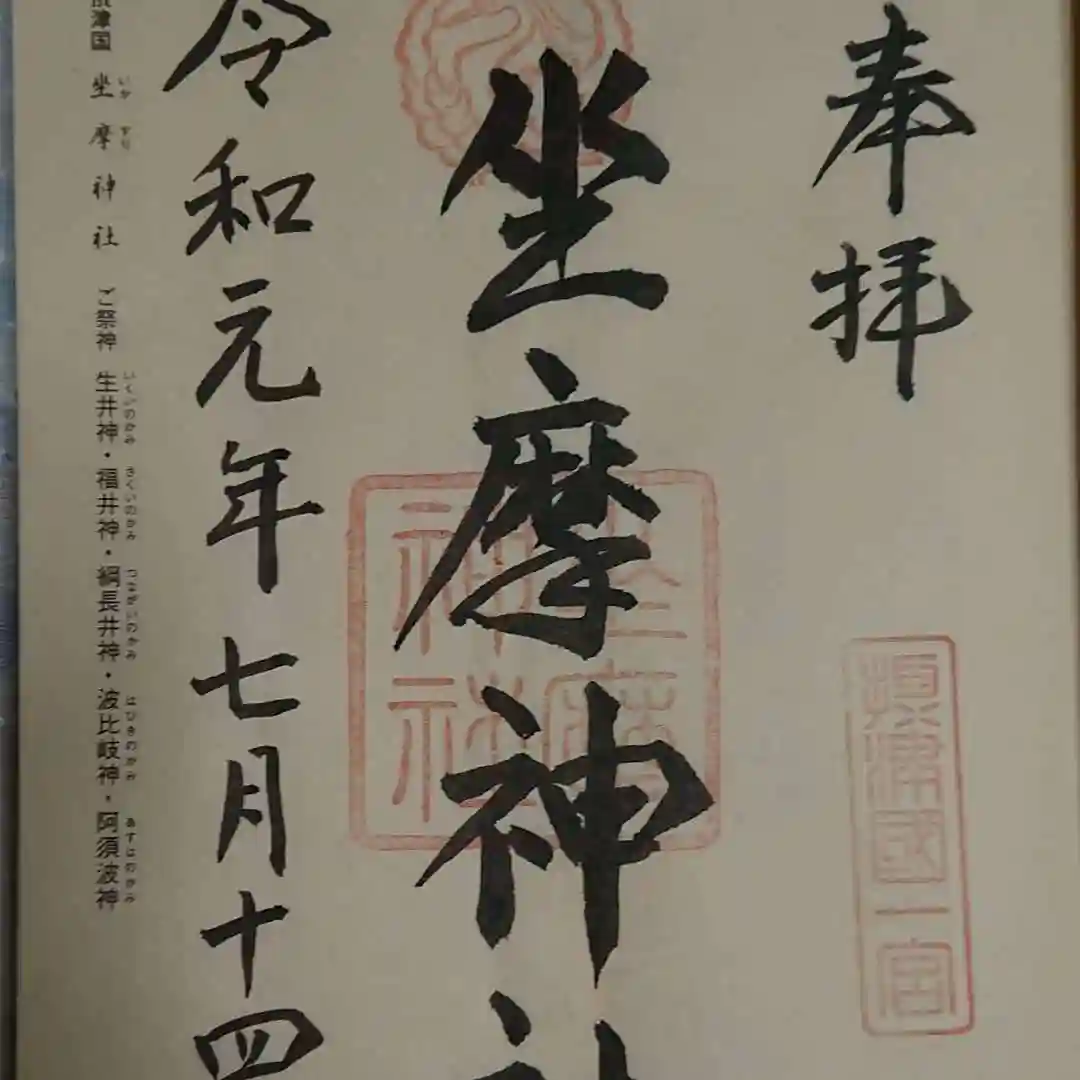 奉拝
攝津國一宮
坐摩神社
坐摩神社
令和元年七月十四
津国 坐摩神社 ご祭神 生井神・福井神・綱長井神・波比岐神・阿須波神
いか すり いくいのかみ さくいのかみ つながいのかみ はひきのかみ あすはのかみ